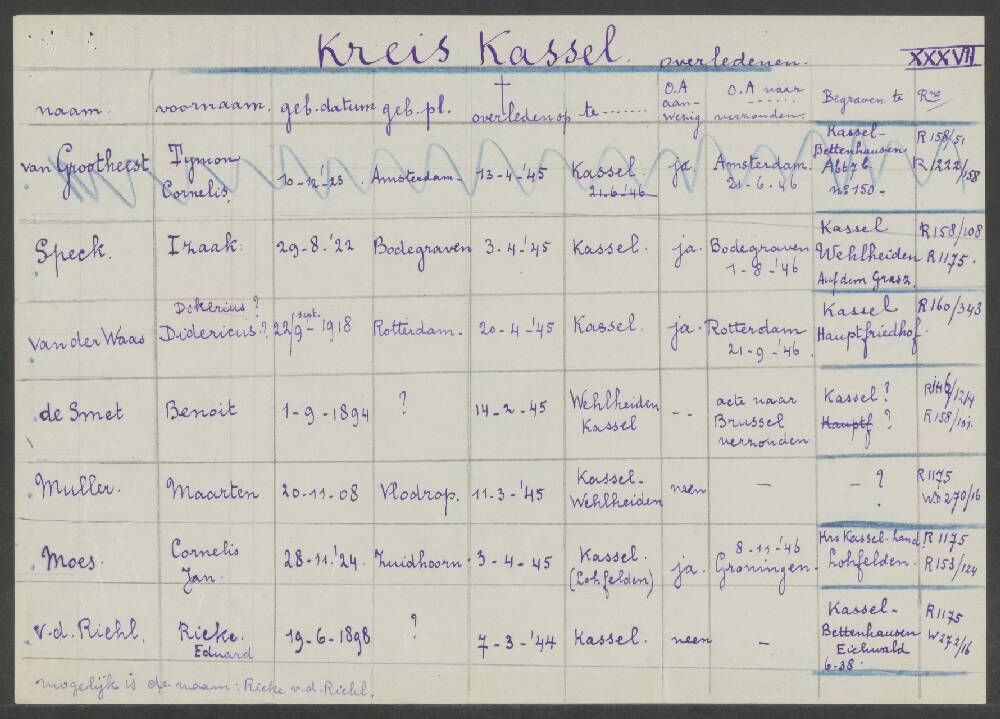 Kreis Kassel. overledenen. XXXVII
naam. voornaam. geb. datum geb. pl. † overleden op te ........ O.A aanwezig O.A naar ...... verzonden. Begraven te Rno
van Grootheest Tymon Cornelis. 10-12-'23 Amsterdam- 13-4-'45 Kassel 21.6.'46 ja. Amsterdam. 21-6-'46 Kassel-Bettenhausen Abt 7 b. no 150- R 158/51 R 1222/158
Speck. Izaak. 29-8-'22 Bodegraven 3-4-'45 Kassel. ja. Bodegraven 1-8-'46 Kassel Wehlheiden Auf dem R 158/108 R 1175.
van der Waas Dokerius? Didericus? 22/9-1918 sept. Rotterdam- 20-4-'45 Kassel. ja. Rotterdam 21-9-'46. Kassel Hauptfriedhof. R 160/343
de Smet Benoit 1-9-1894 ? 14-2-45 Wehlheiden Kassel -- acte naar Brussel verzonden Kassel? Hauptf ? R 158/
Muller. Maarten 20-11-08 Vlodrop. 11-3-'45 Kassel-Wehlheiden neen - - ? R 1175 WD 270/16
Moes. Cornelis Jan. 28-11-'24 Zuidhoorn. 3-4-45 Kassel. (Lohfelden) ja. 8-11-'46 Groningen. Krs Kassel-Land. Lohfelden. R 1175 R 153/124
v.d. Riehl. Rieke. Eduard 19-6-1898 ? 7-3-'44 Kassel. neen - Kassel-Bettenhausen Eichwald 6-38. R 1175 W 272/16
mogelijk is de naam: Rieke v.d. Riehl.